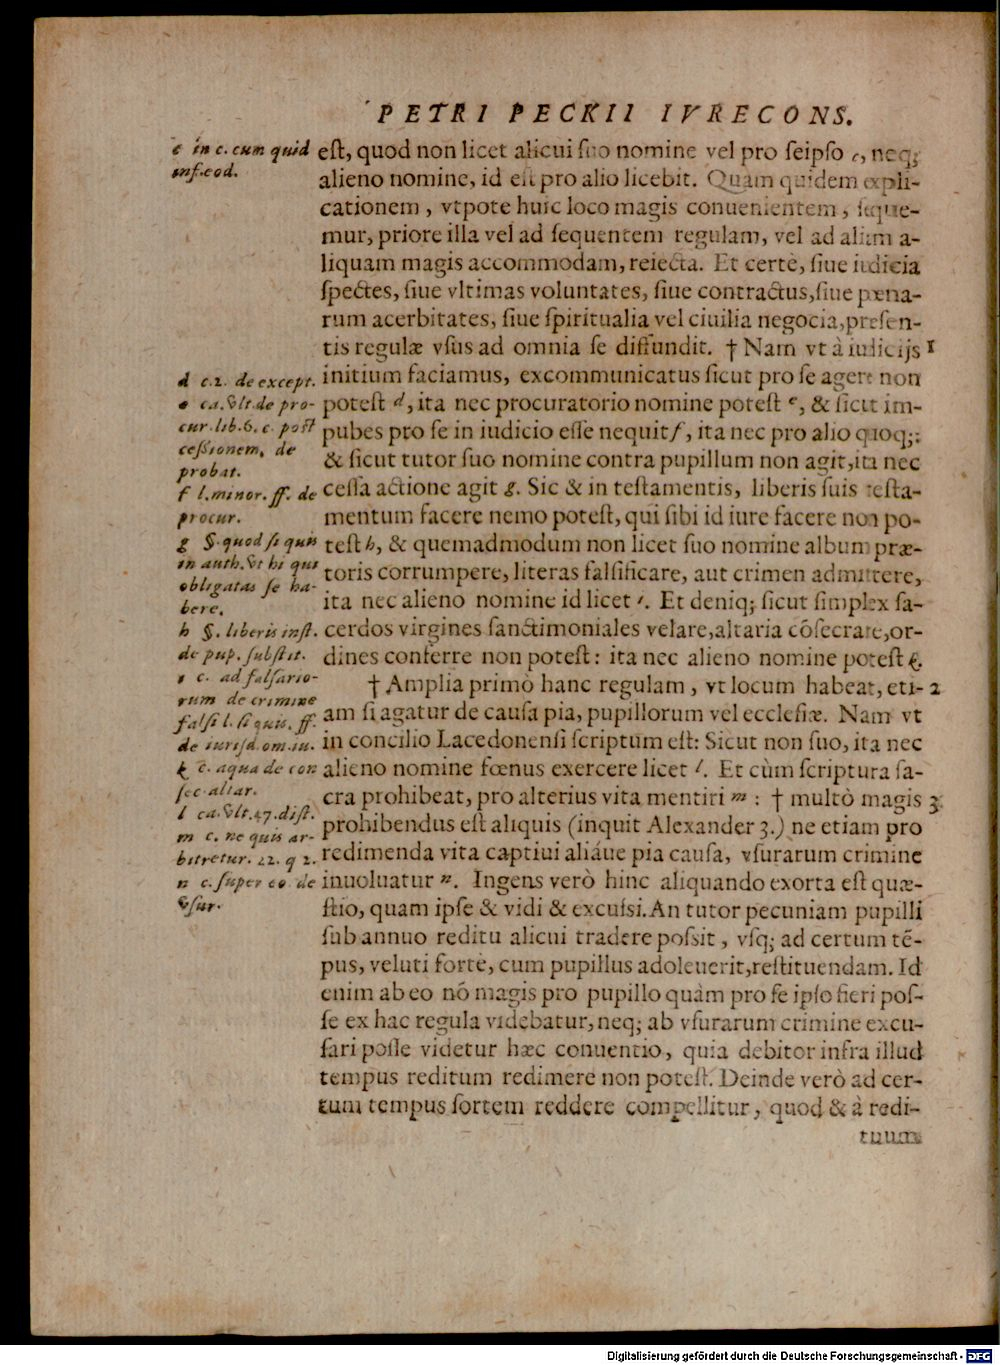 PETRI PECKII IVRECONS.
c in c. cum quid
inf. eod.
eſt, quod non licet alicui ſuo nomine vel pro ſeipſo c, neq;
alieno nomine, id eſt pro alio licebit. Quam quidem expli-
cationem, vtpote huic loco magis conuenientem, ſeque-
mur, priore illa vel ad ſequentem regulam, vel ad aliam a-
liquam magis accommodam, reiecta. Et certè, ſiue iudicia
ſpectes, ſiue vltimas voluntates, ſiue contractus, ſiue pœna-
rum acerbitates, ſiue ſpiritualia vel ciuilia negocia, præſen-
tis regulæ vſus ad omnia ſe diffundit. † Nam vt à iudicijs 1
initium faciamus, excommunicatus ſicut pro ſe agere non
poteſt d, ita nec procuratorio nomine poteſt e, & ſicut im-
pubes pro ſe in iudicio eſſe nequit f, ita nec pro alio quoq;:
& ſicut tutor ſuo nomine contra pupillum non agit, ita nec
ceſſa actione agit g. Sic & in teſtamentis, liberis ſuis teſta-
mentum facere nemo poteſt, qui ſibi id iure facere non po-
teſt h, & quemadmodum non licet ſuo nomine album præ-
toris corrumpere, literas falſificare, aut crimen admittere,
ita nec alieno nomine id licet i. Et deniq; ſicut ſimplex ſa-
cerdos virgines ſanctimoniales velare, altaria cõſecrare, or-
dines conferre non poteſt: ita nec alieno nomine poteſt k.
† Amplia primò hanc regulam, vt locum habeat, eti- 2
am ſi agatur de cauſa pia, pupillorum vel eccleſiæ. Nam vt
in concilio Lacedonenſi ſcriptum eſt: Sicut non ſuo, ita nec
alieno nomine fœnus exercere licet l. Et cùm ſcriptura ſa-
cra prohibeat, pro alterius vita mentiri m: † multò magis 3
prohibendus eſt aliquis (inquit Alexander 3.) ne etiam pro
redimenda vita captiui aliáue pia cauſa, vſurarum crimine
inuoluatur n. Ingens verò hinc aliquando exorta eſt quæ-
ſtio, quam ipſe & vidi & excuſsi. An tutor pecuniam pupilli
ſub annuo reditu alicui tradere poſsit, vſq; ad certum tẽ-
pus, veluti fortè, cum pupillus adoleuerit, reſtituendam. Id
enim ab eo nõ magis pro pupillo quàm pro ſe ipſo fieri poſ-
ſe ex hac regula videbatur, neq; ab vſurarum crimine excu-
ſari poſſe videtur hæc conuentio, quia debitor infra illud
tempus reditum redimere non poteſt. Deinde verò ad cer-
tum tempus ſortem reddere compellitur, quod & à redi-
tuum
d c. 2. de except.
e ca. vlt. de pro-
cur. lib. 6. c. poſt
ceſsionem, de
probat.
f l. minor. ff. de
procur.
g §. quod ſi quis
in auth. vt hi qui
obligatas ſe ha-
bere.
h §. liberis inſt.
de pup. ſubſtit.
i c. ad falſario-
rum de crimine
falſi l. ſi quis. ff.
de iuriſd. om. iu.
k c. aqua de con
ſec. altar.
l ca. vlt. 47. diſt.
m c. ne quis ar-
bitretur. 22. q 2.
n c. ſuper eo. de
vſur.
Digitalisierung gefördert durch die Deutsche Forschungsgemeinschaft - DFG